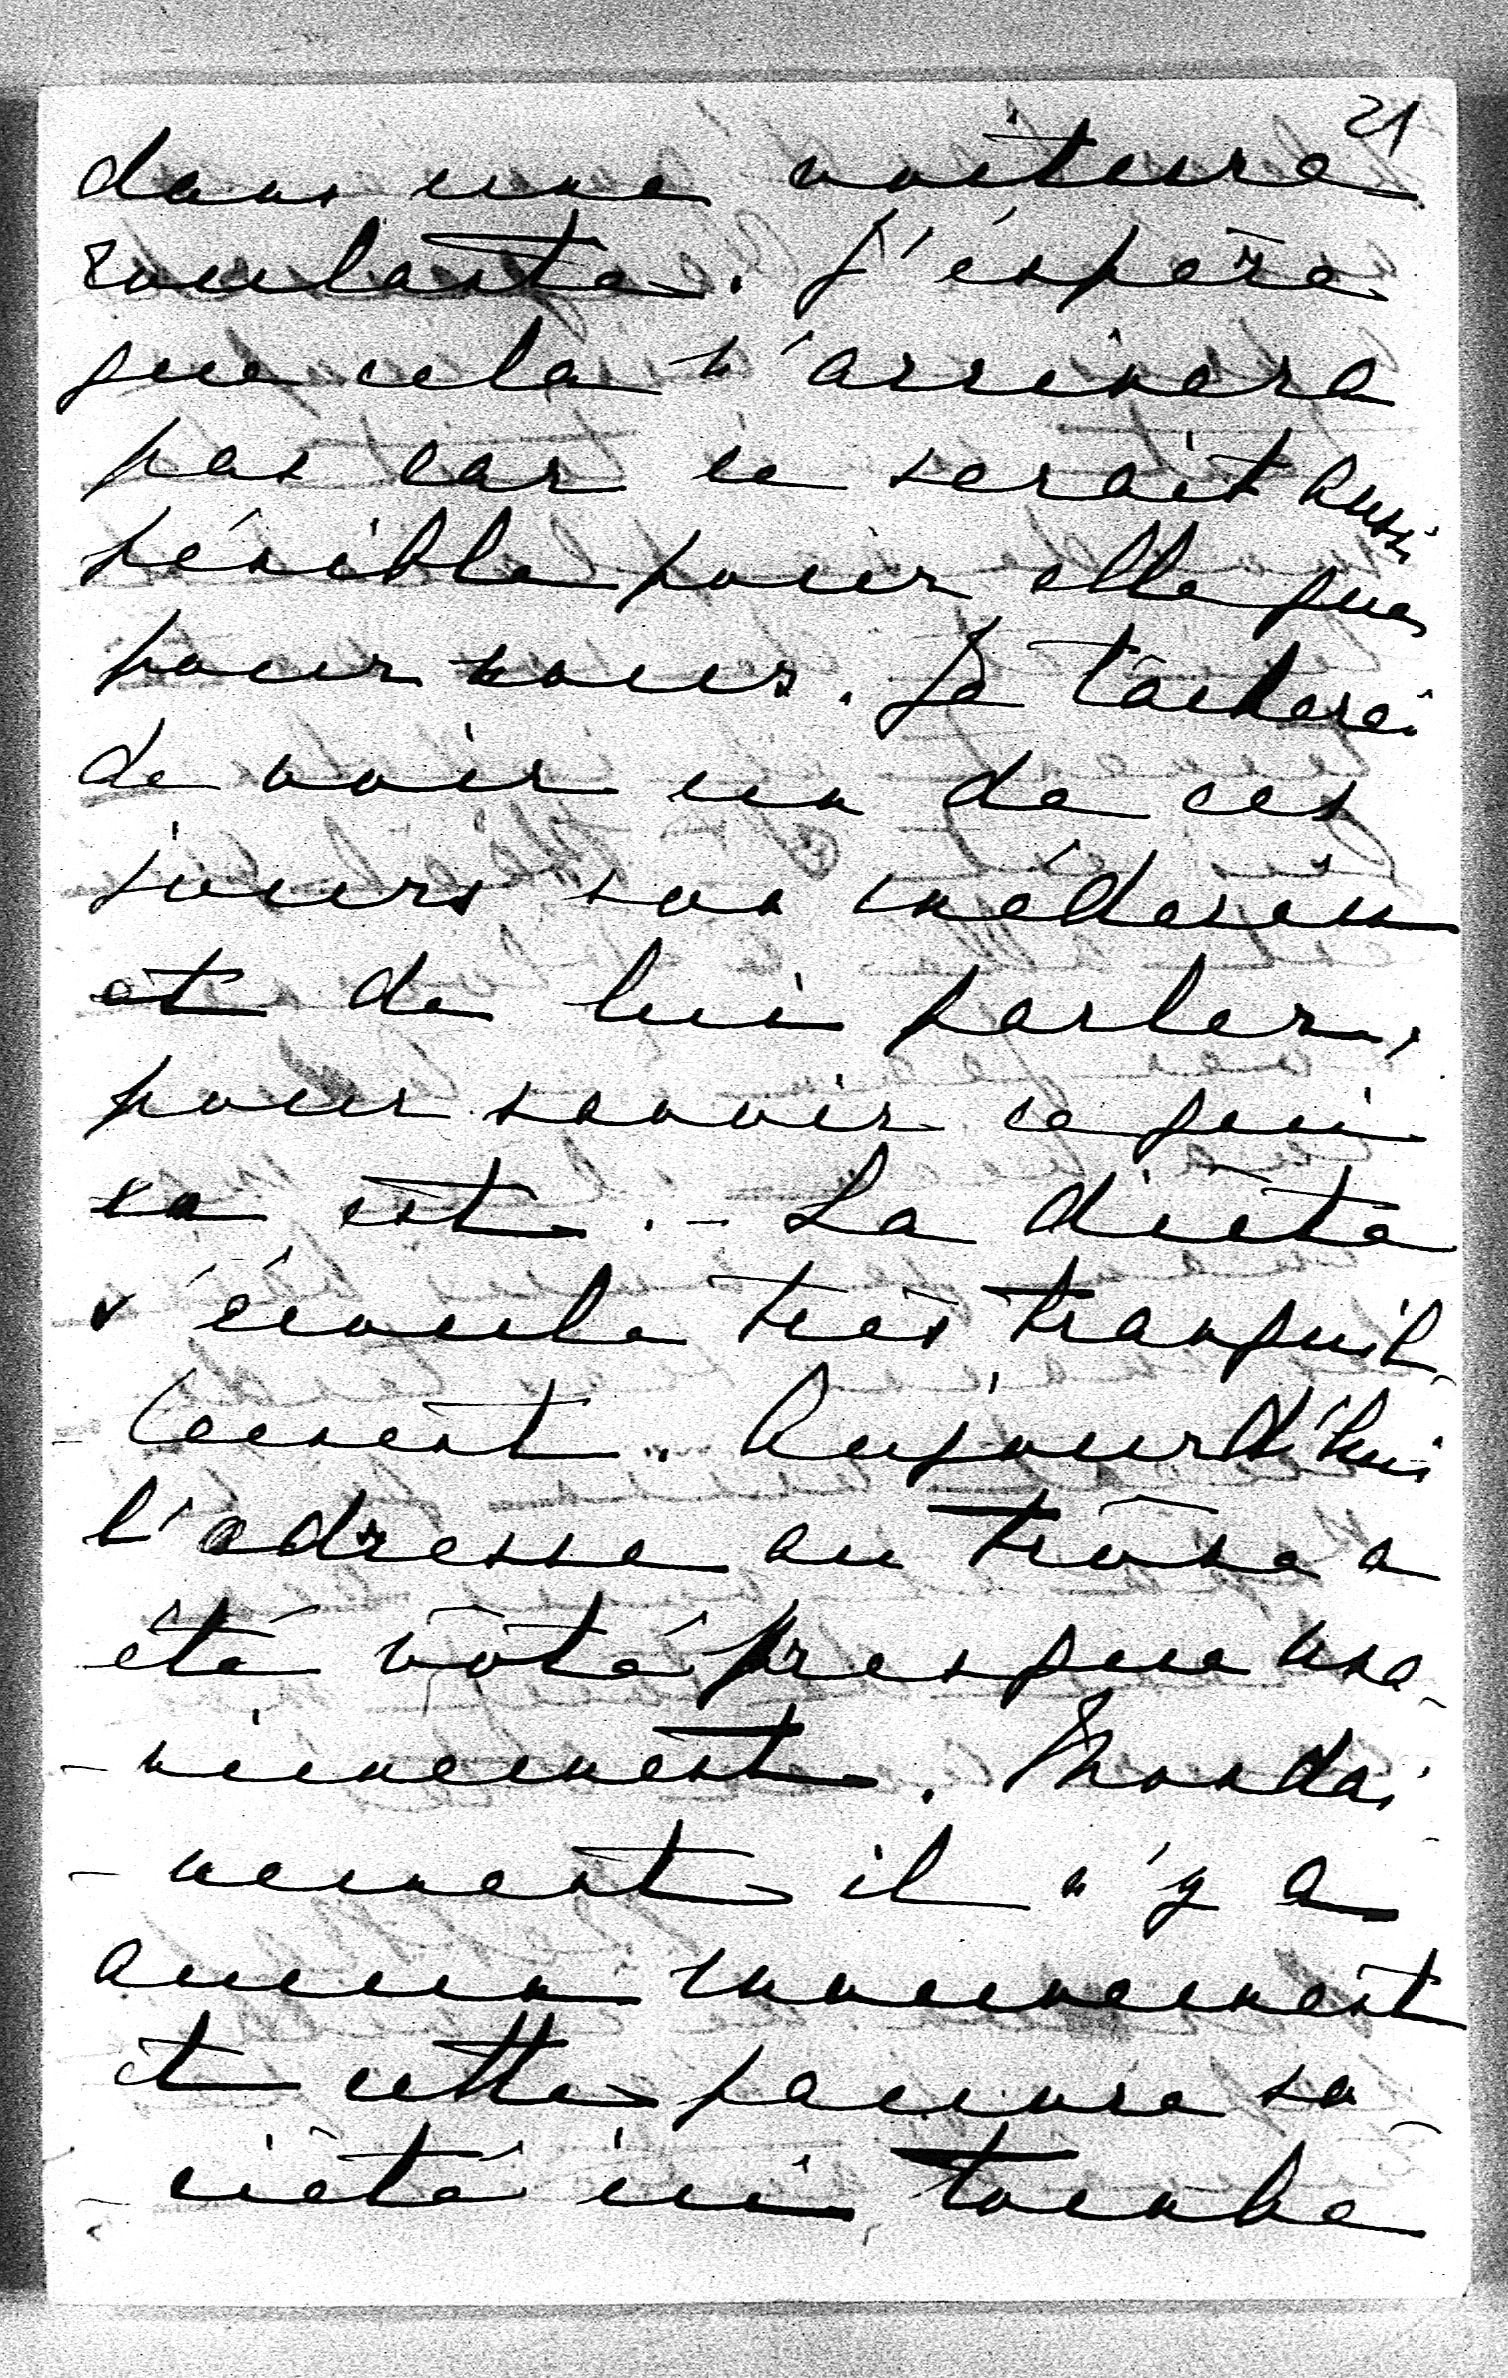 21
dans une voiture
roulante. J'éspère
que cela n'arrivera
pas car ce serait aussi
pénible pour elle que
pour nous. Je tâcherai
de voir un de ces
jours son médecin
et de lui parler,
pour savoir ce qui
en est. - La diète
s'écoule très tranquil-
- lement. Aujourd'hui
l'adresse au trône a
été voté presque una-
- nimement. Mondai
- nement il n'y a
aucun mouvement
et cette pauvre so-
- ciété ici tombe